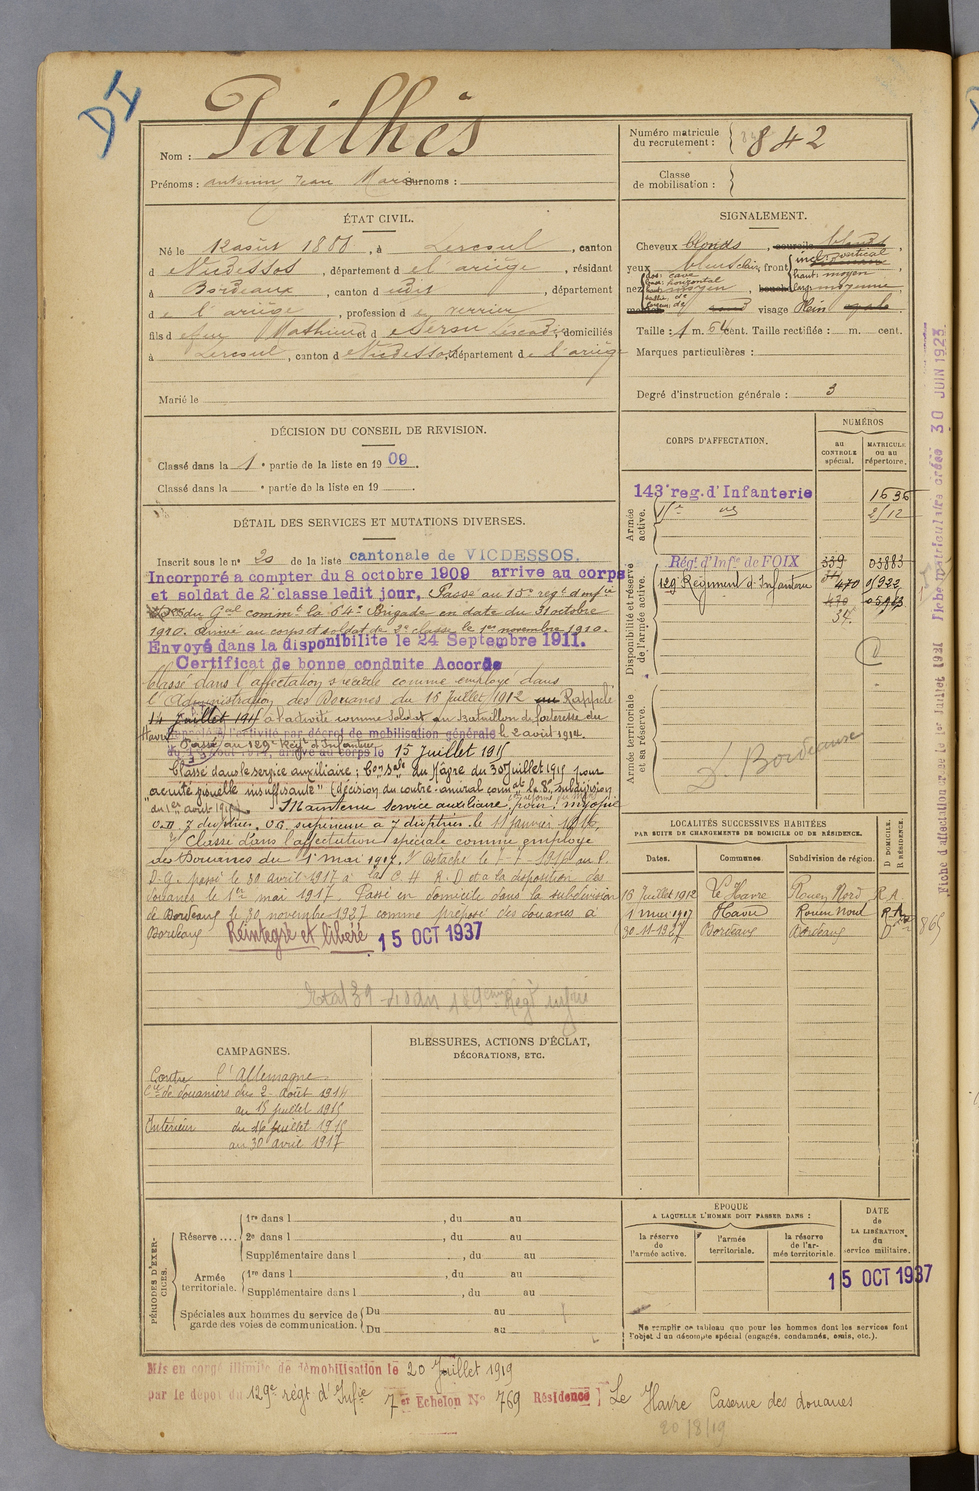 DI
Nom : Pailhès
Prénoms : antonin Jean Marie Surnoms :
ÉTAT CIVIL.
Né le 12 août 1888, à Lercoul, canton
d e Vicdessos, département d e l'ariège, résidant
à Bordeaux, canton d udit, département
d e l'ariège, profession d e verrier
fils d e feu Mathieu et d e domiciliés
à Lercoul, canton d e Vicdessos, département d e l'ariège
Marié le
DÉCISION DU CONSEIL DE REVISION.
Classé dans la 1e partie de la liste en 1909.
Classé dans la e partie de la liste en 19 .
DÉTAIL DES SERVICES ET MUTATIONS DIVERSES.
Inscrit sous le n° 20 de la liste cantonale de VICDESSOS.
Incorporé a compter du 8 octobre 1909 arrive au corps
et soldat de 2e classe ledit jour, Passé au 15e régt d'infie
du Gal commt la 64e Brigade en date du 31 octobre
1910. Arrivé au corps et soldat de 2e classe le 1er novembre 1910.
Envoyé dans la disponibilité le 24 Septembre 1911.
Certificat de bonne conduite Accordé
Classé dans l'affectation spéciale comme employé dans
l'Administration des Douanes du 15 Juillet 1912 Rappelé
14 Juillet 1915 à l'activité comme soldat au Bataillon de forteresse du
Havre rappelé à l'activité par décret de mobilisation générale le 2 août 1914.
Passé au 129e Régt d'Infanterie
arrivé au corps le 15 Juillet 1915
Classé dans le service auxiliaire; Con du Hâvre du 30 Juillet 1915 pour
acuité visuelle insuffisante" (décision du contre-amiral comt la 8e subdivision
du 1er août 1915) Maintenu service auxiliaire pour : myopie
O.D. 7 dioptries, O.G. supérieure à 7 dioptries. le 11 janvier 1916.
Classé dans l'affectation spéciale comme employé
des Douanes du 1er mai 1917. Détaché le
passé le 30 avril 1917 à la C H R D et à la disposition des
douanes le 1er mai 1917. Passé en domicile dans la subdivision
de Bordeaux le 30 novembre 1927 comme préposé des douanes à
Bordeaux Réintégré et libéré 15 OCT 1937
CAMPAGNES.
Contre l'Allemagne
de douaniers du 2 août 1914
au 15 juillet 1915
Intérieur du 16 juillet 1915
au 30 avril 1917
BLESSURES, ACTIONS D'ÉCLAT,
DÉCORATIONS, ETC.
PÉRIODES D'EXERCICES.
Réserve .... 1re dans l , du au
2e dans l , du au
Supplémentaire dans l , du au
Armée territoriale. 1re dans l , du au
Supplémentaire dans l , du au
Spéciales aux hommes du service de garde des voies de communication. Du au
Du au
Numéro matricule du recrutement : 842
Classe de mobilisation :
SIGNALEMENT.
Cheveux blonds, sourcils
yeux bleus clair, front incl. vertical
haut. moyen
nez dos: cave
base: horizontal
haut. moyen, larg. moyenne
visage Plein
Taille : 1 m. 64 cent. Taille rectifiée : m. cent.
Marques particulières :
Degré d'instruction générale : 3
CORPS D'AFFECTATION.
NUMÉROS
au CONTROLE spécial.
MATRICULE ou au répertoire.
Armée active.
143e reg. d'Infanterie 1636
15e 2/12
Disponibilité et réserve de l'armée active.
Régt d'Infie de FOIX 339 03883
129e Régiment d'Infanterie 470
34.
Armée territoriale et sa réserve.
D. Bordeaux
LOCALITÉS SUCCESSIVES HABITÉES
PAR SUITE DE CHANGEMENTS DE DOMICILE OU DE RÉSIDENCE.
Dates. Communes. Subdivision de région. D DOMICILE. R RÉSIDENCE.
16 Juillet 1912 Le Havre Rouen Nord R.A.
1 mai 1917 Havre Rouen Nord R.A
30-11-1927 Bordeaux Bordeaux D 865
ÉPOQUE
A LAQUELLE L'HOMME DOIT PASSER DANS :
la réserve de l'armée active.
l'armée territoriale.
la réserve de l'armée territoriale.
DATE de LA LIBÉRATION du service militaire.
15 OCT 1937
Ne remplir ce tableau que pour les hommes dont les services font
l'objet d'un décompte spécial (engagés, condamnés, omis, etc.).
Fiche d'affectation créée le 1er Juillet 1931 Fiche matriculaire créée 30 JUIN 1923
Mis en congé illimité de démobilisation le 20 Juillet 1919
par le dépôt du 129e régt d'Infie 7e Echelon N° 769 Résidence : Le Havre Caserne des douanes
20/8/19